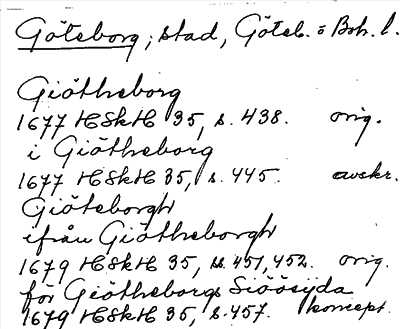 Göteborg; stad, Göteb. o Boh. l.
Giötheborg
1677 HSkH 35, s. 438. orig.
i Giötheborg
1677 HSkH 35, s. 445. avskr.
Giöteborgh
ifrån Giötheborgh
1679 HSkH 35, ss. 451, 452. orig.
för Giötheborgs Siöösijda
1679 HSkH 35, s. 457. koncept.